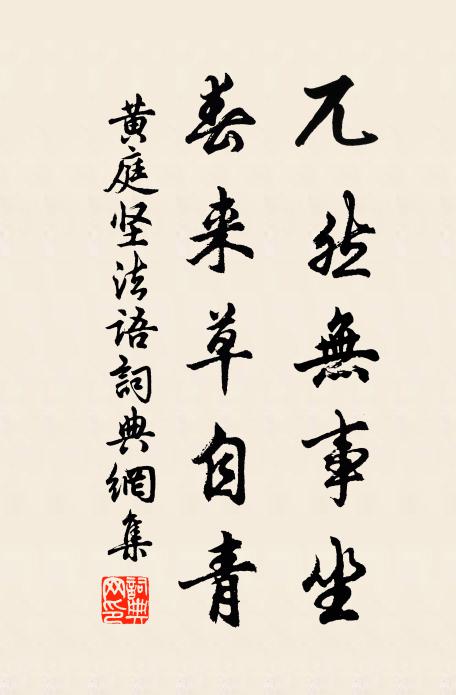 兀然無事坐
春来草自青
黄庭坚法語詞典網集
詞典
网印